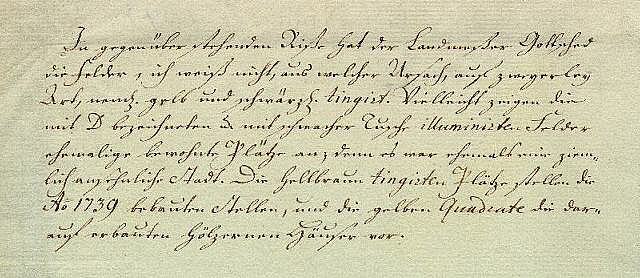 In gegenüber stehenden Riße hat der Landmeßer Gottsched
die Felder, ich weiß nicht, aus welcher Ursach, auf zweyerley
Art, neml. gelb und schwärzl. tingirt. Vielleicht zeigen die
mit D bezeichneten u. mit schwacher Tusche illuministen Felder
ehemalige bewohnte Plätze an, denn es war ehemals eine ziem-
lich ansehnliche Stadt. Die hellbraun tingirten Plätze stellen die
Ao 1739 bebauten Stellen, und die gelben Quadrate die dar-
auf erbauten hölzernen Häuser vor.